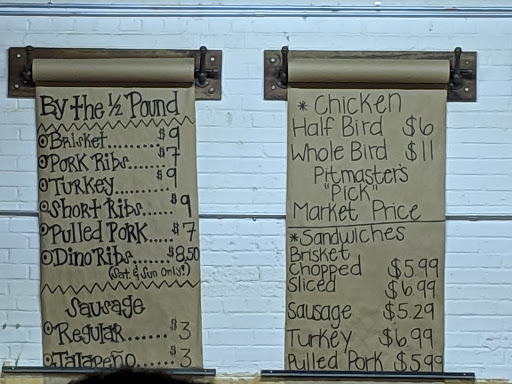 By the ½ Pound
Brisket........ $9
Pork Ribs... $7
Turkey........ $9
Short Ribs..... $9
Pulled Pork.... $7
Dino Ribs..... $8.50
(Sat. & Sun Only!)
Sausage
Regular....... $3
Jalapeño..... $3
* Chicken
Half Bird $6
Whole Bird $11
Pitmaster's
"Pick"
Market Price
* Sandwiches
Brisket
Chopped $5.99
Sliced $6.99
Sausage $5.29
Turkey $6.99
Pulled Pork $5.99